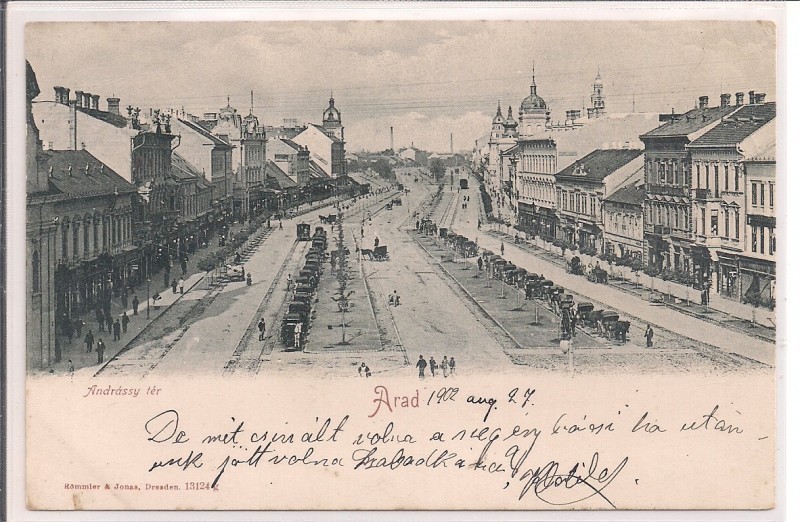 Andrássy tér
Arad 1902 aug. 27.
De mit csinált volna a szegény bácsi ha után-
unk jött volna Szabadkára,
Römmler & Jonas, Dresden. 13124